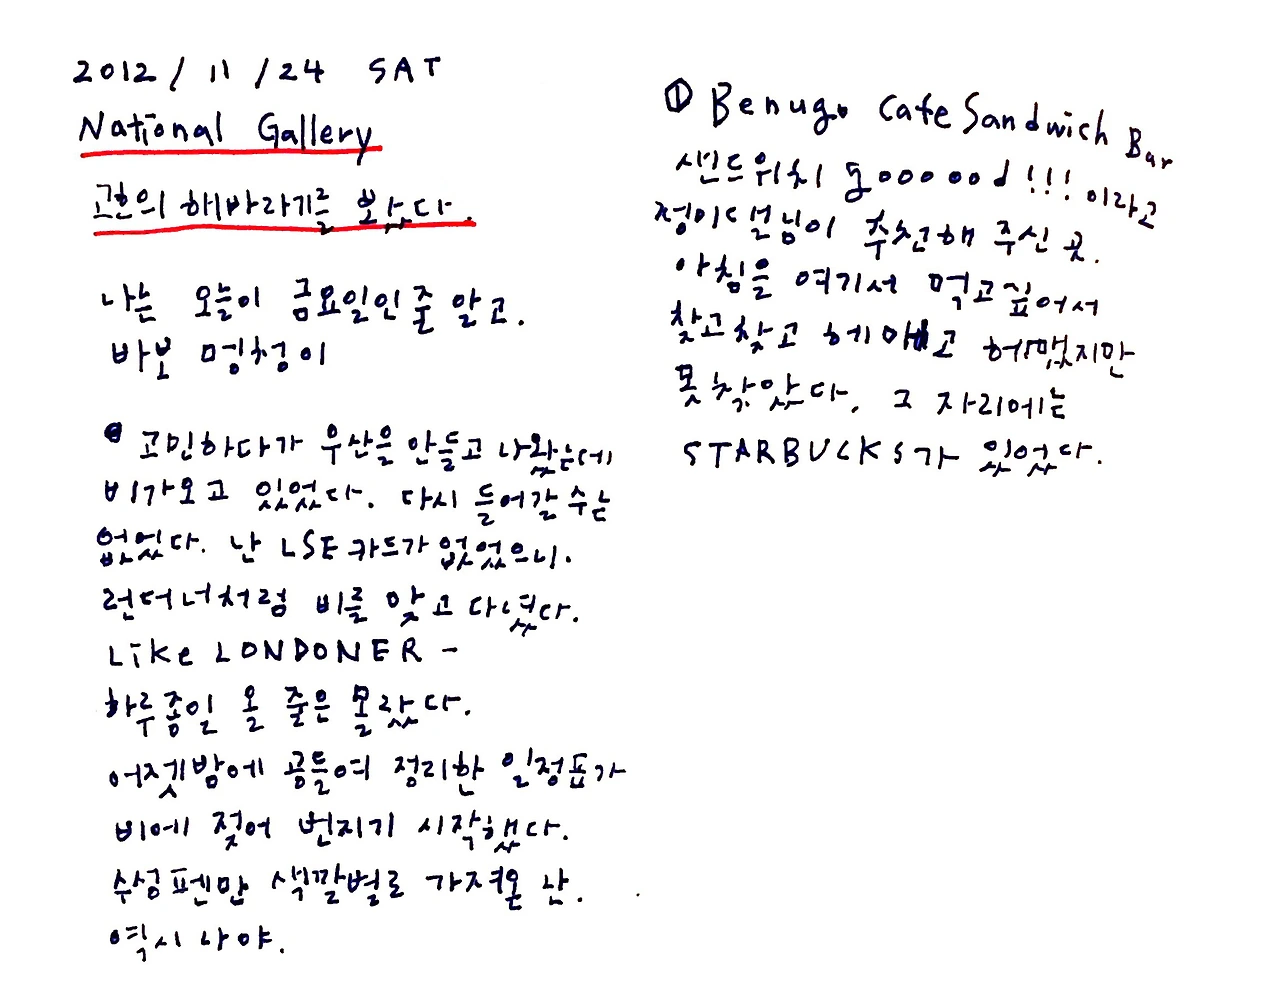 2012 / 11 / 24 SAT
National Gallery
고흐의 해바라기를 봤다.
나는 오늘이 금요일인 줄 알고.
바보 멍청이
고민하다가 우산을 안들고 나왔는데
비가오고 있었다. 다시 들어갈 수는
없었다. 난 LSE 카드가 없었으니.
런더너처럼 비를 맞고 다녔다.
Like LONDONER -
하루종일 올 줄은 몰랐다.
어젯밤에 공들여 정리한 일정표가
비에 젖어 번지기 시작했다.
수성펜만 색깔별로 가져온 난.
역시 나야.
① Benugo Cafe Sandwich Bar
샌드위치 gooooood!!! 이라고
정이선님이 추천해 주신 곳.
아침을 여기서 먹고싶어서
찾고찾고 헤매고 헤맸지만
못찾았다. 그 자리에는
STARBUCKS가 있었다.